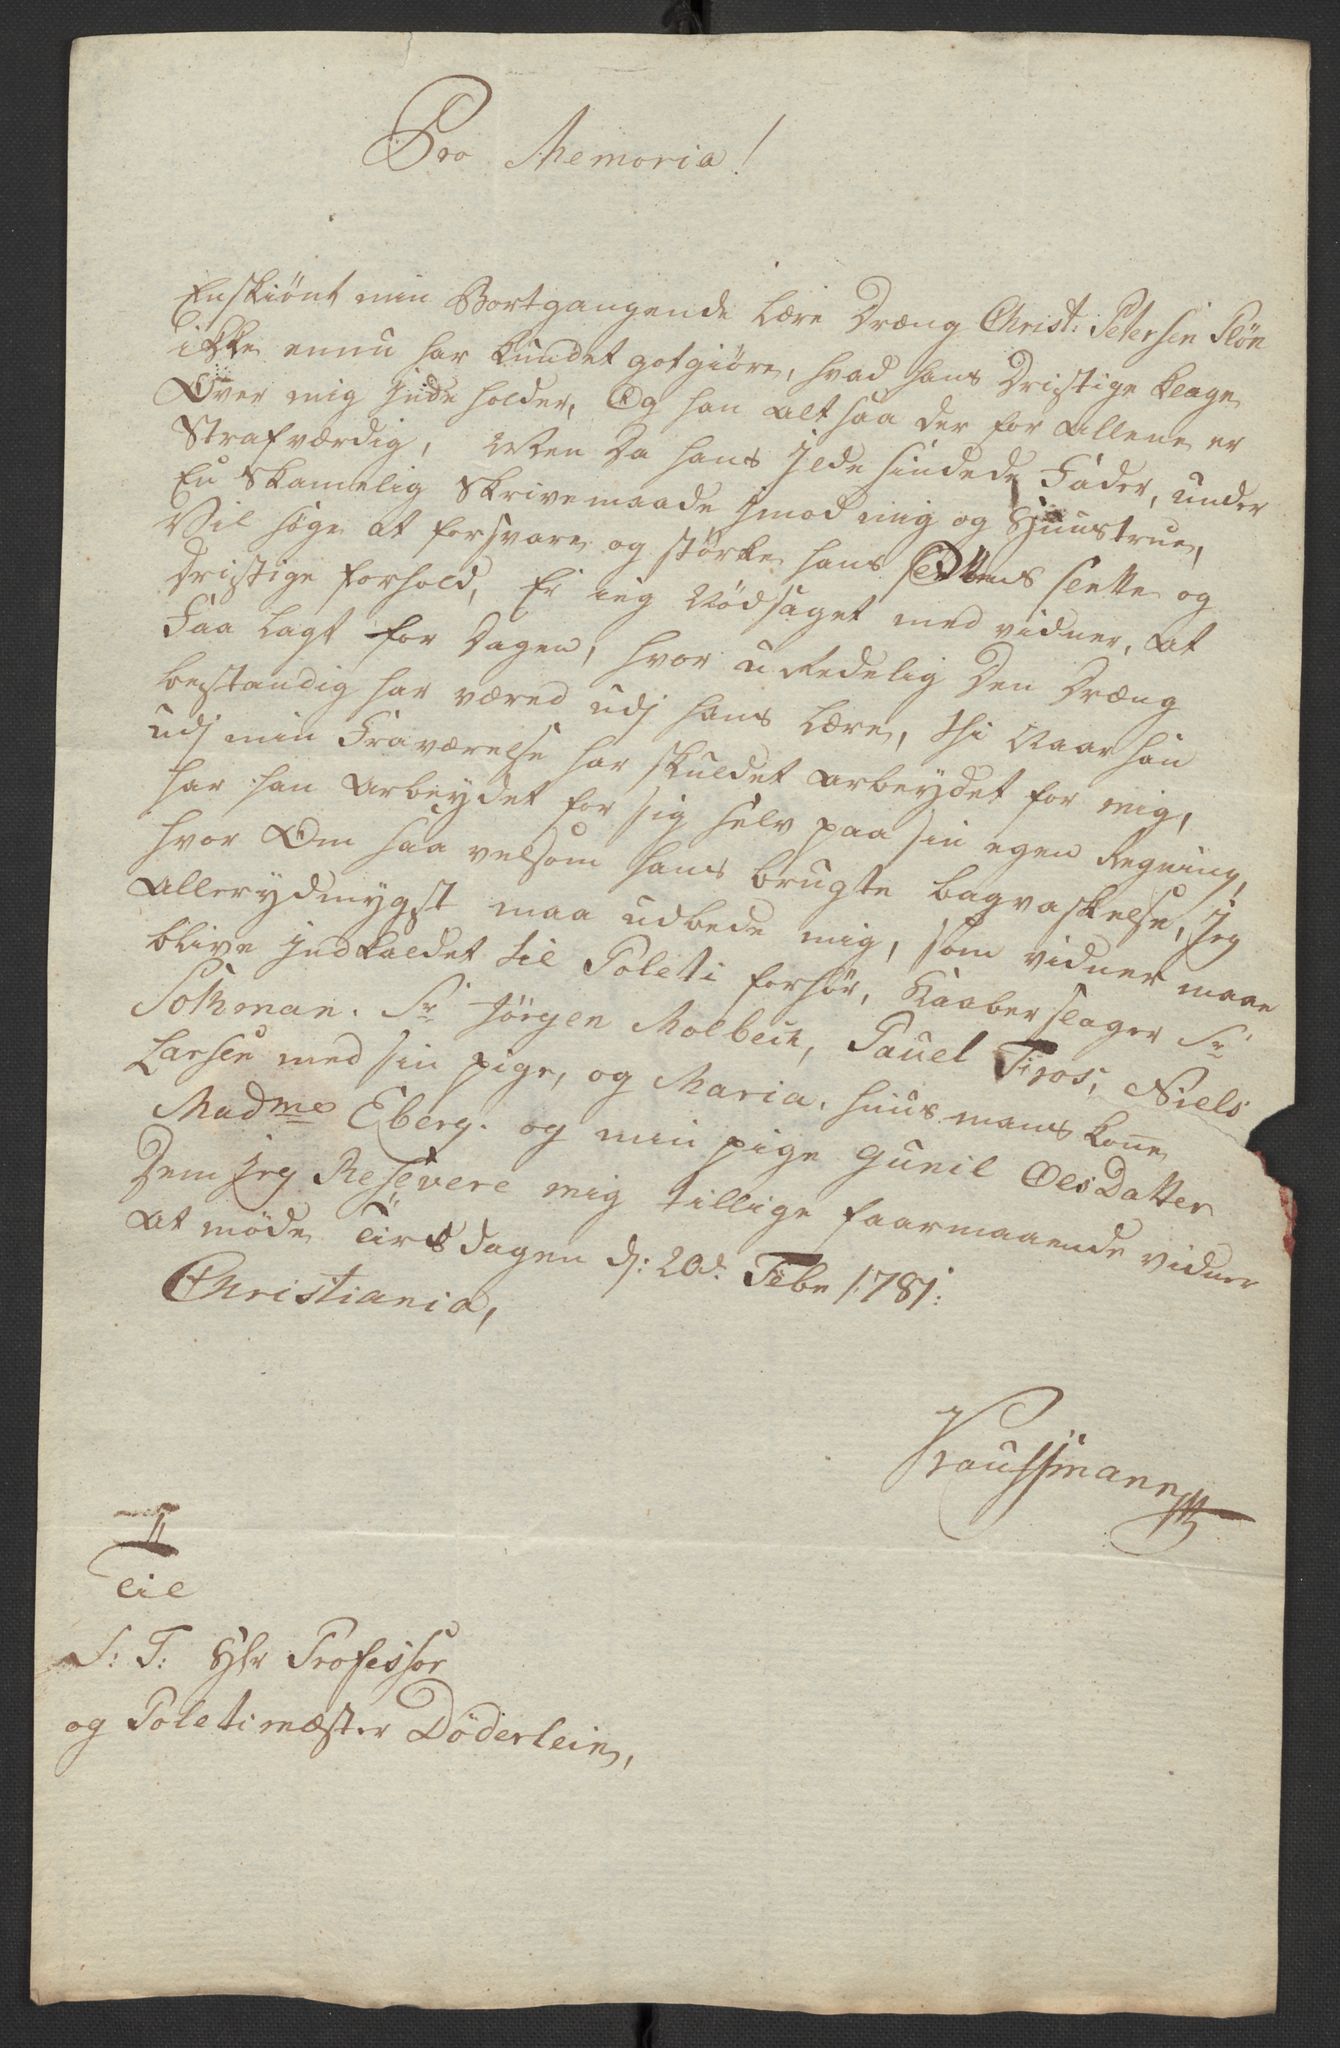 Pro Memoria!
Enskiönt min Bortgangende Lære Dræng Christ: Petersen Plön
ikke ennu har kundet gotgiöre, hvad hans Dristige klage
Over mig Jnde holder, Og han alt saa der for allene er
Strafværdig, Men Da hans Jlde sindede Fader, under
En Skamelig Skrivemaade Jmod mig og Huustrue,
Vil söge at forsvare og störke hans slette og
Dristige forhold, Er ieg Nödsaget med vidner, at
Faa Lagt for Dagen, hvor u Redelig Den Dræng
bestandig har været udj hans Lære, thi Naar han
udj min Fraværelse har skuldet arbeydet for mig,
har han Arbeydet for sig selv paa sin egen Regning,
hvor Om saa velsom hans brugte bagvaskelse, Jeg
allerydmygst maa udbede mig, som vidner maae
blive Jndkaldet til Politi forhör, Kaaberslager Sr
Sr Jörgen Molbech, Pauel Niels
Larsen med sin pige, og Maria. huusmans kone
Madme Eberg. og min pige Gunil OlesDatter
Dem jeg Reservere mig tillige faarmaaende vidner
at möde Tirsdagen d: 20de Febr 1781:
Christiania,
Kauffmann
Til
S: T: Hr Professor
og Poletimæster Döderlein,